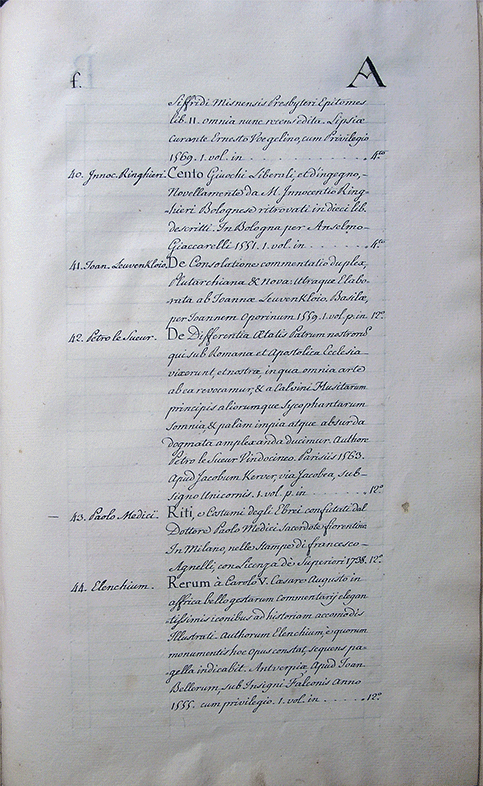 f. A
Siffridi Misnensis Presbyteri Epitomes
lib. II. omnia nunc recens edita. Lipsiæ
curante Ernesto Voegelino, cum Privilegio
1569. 1. vol. in . . . . . . . . . . . 4.to
40. Innoc. Ringhieri. Cento Giuochi Liberali, et d'ingegno,
Novellamente da M. Innocentio Ring-
hieri Bolognese ritrovati in dieci lib.
descritti. In Bologna per Anselmo
Giaccarelli 1551. 1. vol. in . . . . . 4.to
41. Ioan. Leuvenkloio. De Consolatione commentatio duplex,
Plutarchiana & Nova: Utraque Elabo-
rata ab Ioannæ Leuvenkloio. Basileæ,
per Ioannem Oporinum 1559. 1. vol. p. in 12.o
42. Petro le Sueur. De Differentia Ætatis Patrum nostrorũ
qui sub Romana et Apostolica Ecclesia
vixerunt, et nostræ, in qua omnia arte
ab ea revocamur, & a Calvini Musitarum
principis aliorumque Sycophantarum
somnia, & palàm impia atque absurda
dogmata amplexanda ducimur. Authore
Petro le Sueur Vindocineo. Parisiis 1563.
Apud Jacobum Kerver, via Jacobea, sub-
signo Unicornis. 1. vol. p. in . . . . . . . 12.o
43. Paolo Medici. Riti, e Costumi degli Ebrei confutati dal
Dottore Paolo Medici Sacerdote fiorentino
In Milano, nelle Stampe di francesco
Agnelli, con licenza dè Superiori 1738. 12.o
44. Elenchium. Rerum à Carolo V. Cæsare Augusto in
affrica bello gestarum Commentarij elegan
tissimis iconibus ad historiam accomodis
Illustrati. Authorum Elenchium, è quorum
monumentis hoc opus constat, sequens pa-
gella indicabit. Antverpiæ Apud Ioan.
Bellerum, sub Insigni Falconis Anno
1555. cum privilegio. 1. vol. in . . . . . 12.o